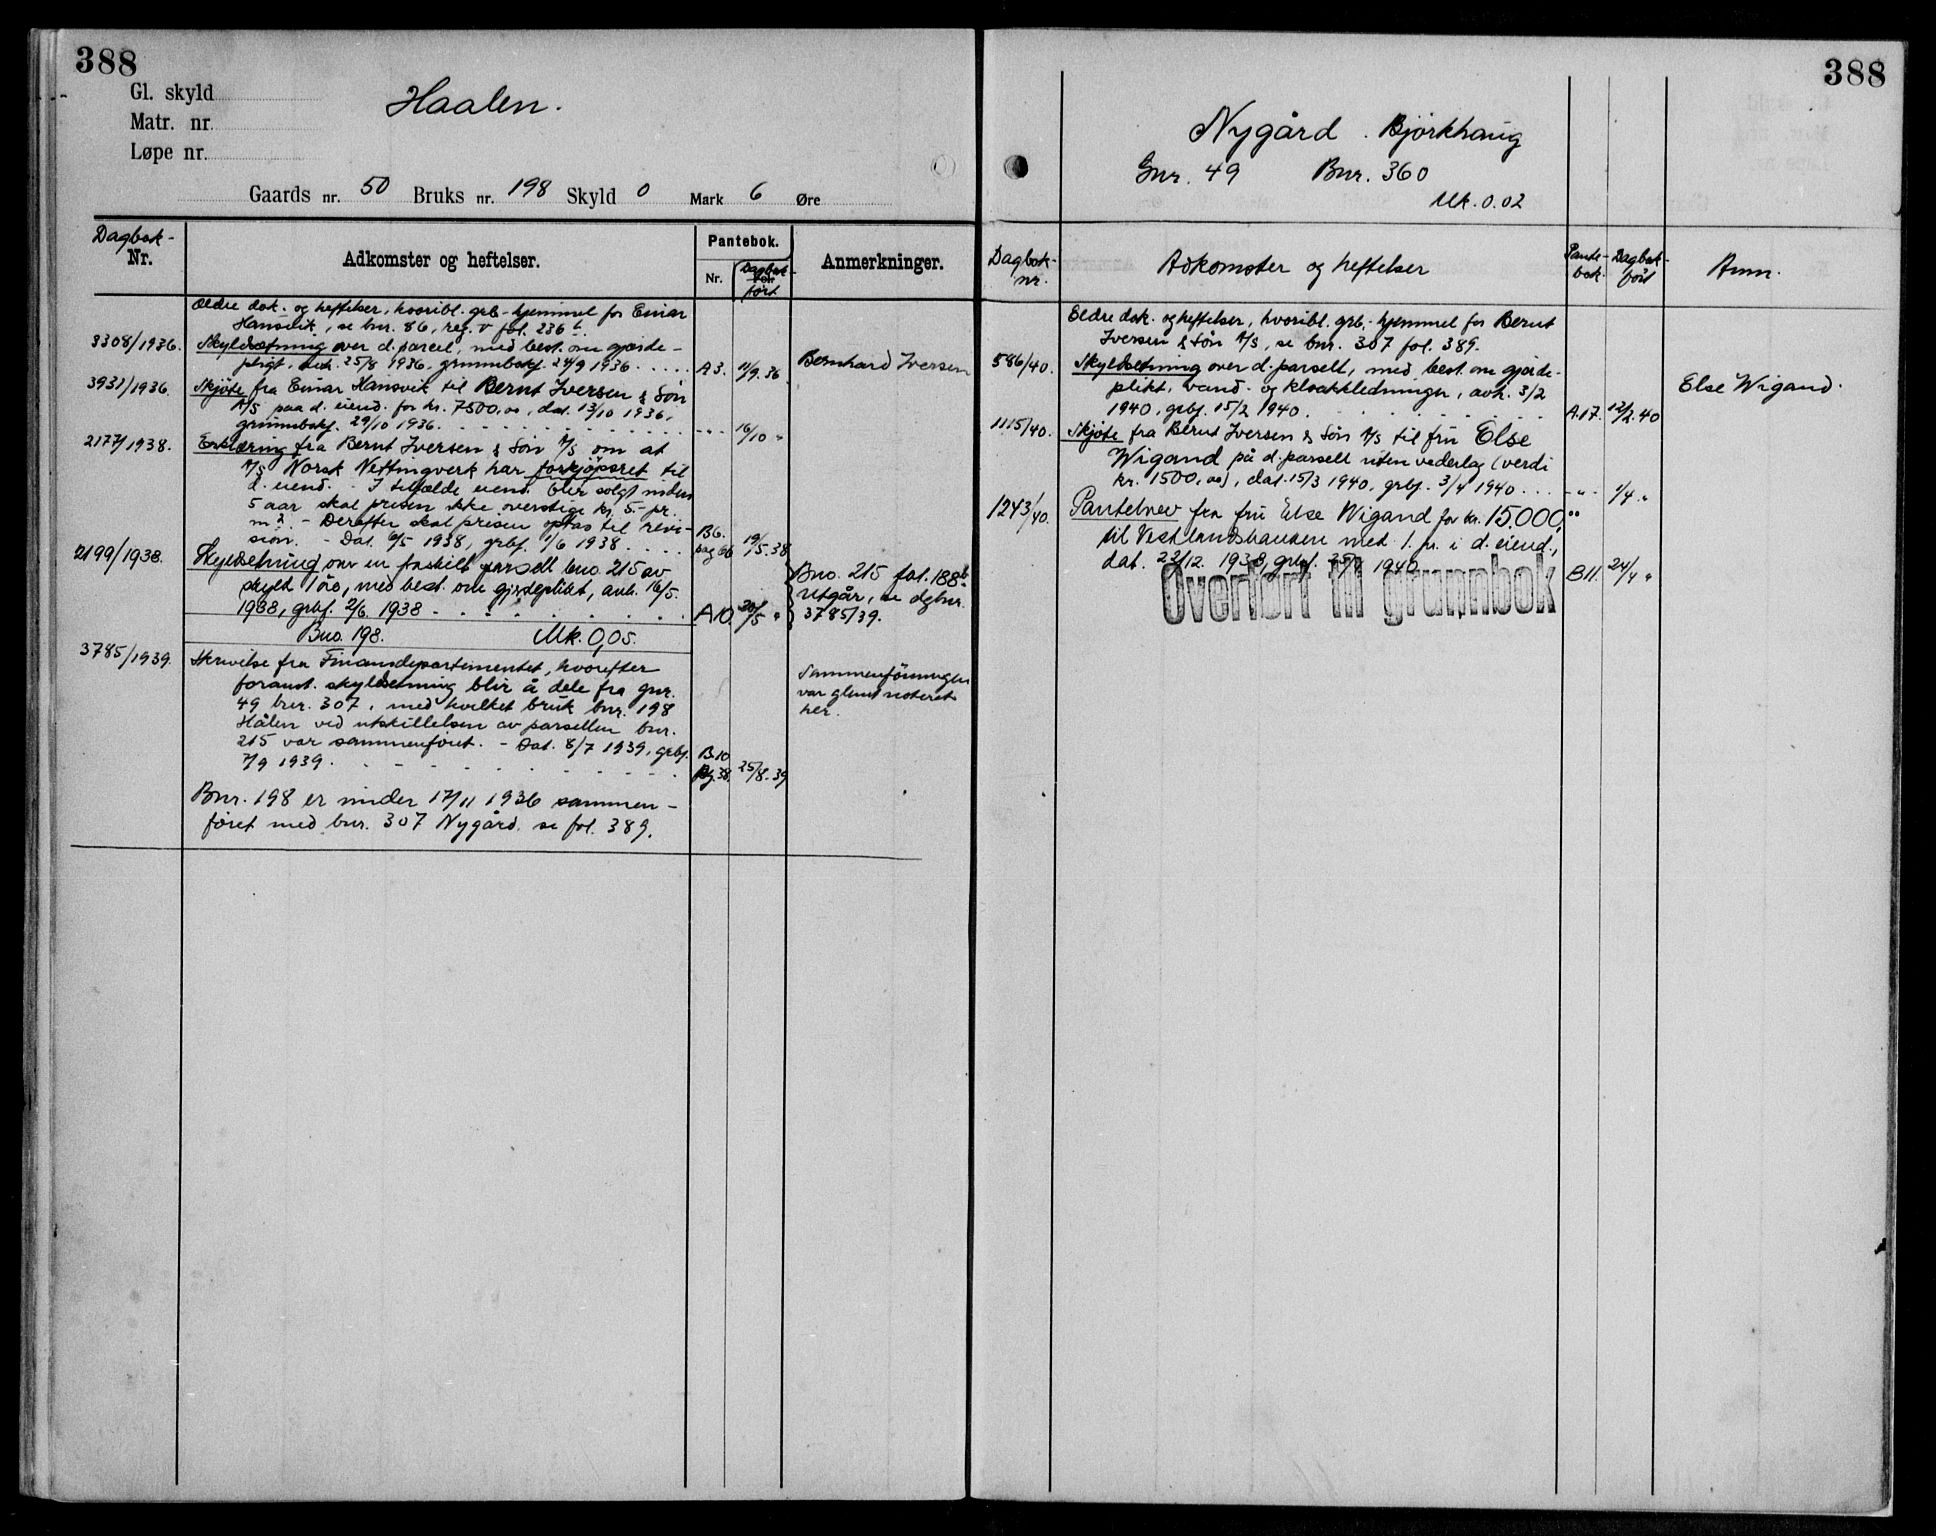 388
Gl. skyld
Matr. nr.
Løpe nr.
Haalen.
Gaards nr. 50 Bruks nr. 198 Skyld 0 Mark 6 Øre
Dagbok-
Nr.
Adkomster og heftelser.
Pantebok.
Nr.
Dagbok-
ført
Anmerkninger.
Ældre dok. og heftelser, hvoribl. grb-hjemmel for Einar
Hansvik, se bnr. 86, reg. V fol. 236 b.
3308/1936. Skyldsetning over d. parcel, med best. om gjærde-
pligt, avh. 25/8 1936, grunnboksf. 24/9 1936 . . . . . A3. 11/9.36 Bernhard Iversen
3931/1936. Skjøte fra Einar Hansvik til Bernt Iversen & Søn
A/S paa d. eiend. for kr. 7500,00, dat. 13/10 1936,
grunnboksf. 29/10 1936. - " - 16/10 "
2177/1938. Erklæring fra Bernt Iversen & Søn A/S om at
A/S Norsk Nettingverk har forkjøpsret til
d. eiend. - I tilfælde eiend. blir solgt inden
5 aar skal prisen ikke overstige kr. 5.- pr.
m². - Derefter skal prisen optas til revi-
sion. - Dat. 6/5 1938, grbf. 1/6 1938 . . . . B6. pag 66 19/5.38
2199/1938. Skyldsetning over en fraskilt parsell bno. 215 av
skyld 1 øre, med best. om gjerdeplikt, avh. 16/5.
1938, grbf. 2/6 1938 - . . A10 20/5 "
Bno. 215 fol. 188 b
Utgår, se dgbnr.
3785/39.
Bno. 198. Mk. 0,05.
3785/1939. Skrivelse fra Finansdepartementet, hvorefter
foranst. skyldsetning blir å dele fra gnr.
49 bnr. 307, med hvilket bruk bnr. 198
Hålen ved utskillelsen av parsellen bnr.
215 var sammenføiet. - Dat. 8/7 1939, grbf.
7/9 1939. B.10 Pg. 38. 25/8.39
Sammenføiningen
var glemt noteret
her.
Bnr. 198 er under 17/11 1936 sammen-
føiet med bnr. 307 Nygård, se fol. 389.
388
Nygård . Bjørkhaug
Gnr. 49 Bnr. 360
Mk. 0.02
Dagbok-
nr.
Adkomster og heftelser
Pante-
bok
Dagbok-
ført
Anm.
Eldre dok. og heftelser, hvoribl. grb.-hjemmel for Bernt
Iversen & Søn A/S, se bnr. 307 fol. 389.
586/40. Skyldsetning over d. parsell, med best. om gjerde-
plikt, vand- og kloakkledninger, avh. 3/2
1940, grbf. 15/2 1940. A.17. 12/2.40 Else Wigand.
1115/40. Skjøte fra Bernt Iversen & Søn A/S til fru Else
Wigand på d. parsell uten vederlag (verdi
kr. 1500,00), dat. 15/3 1940, grbf. 3/4 1940 . . . - " - 1/4 "
1243/40. Pantebrev fra fru Else Wigand for kr. 15.000,00
til Vestlandsbanken med 1. pr. i d. eiend.,
dat. 22/12 1938, grbf. 25/4 1940. B11. 24/4 "
Overført til grunnbok